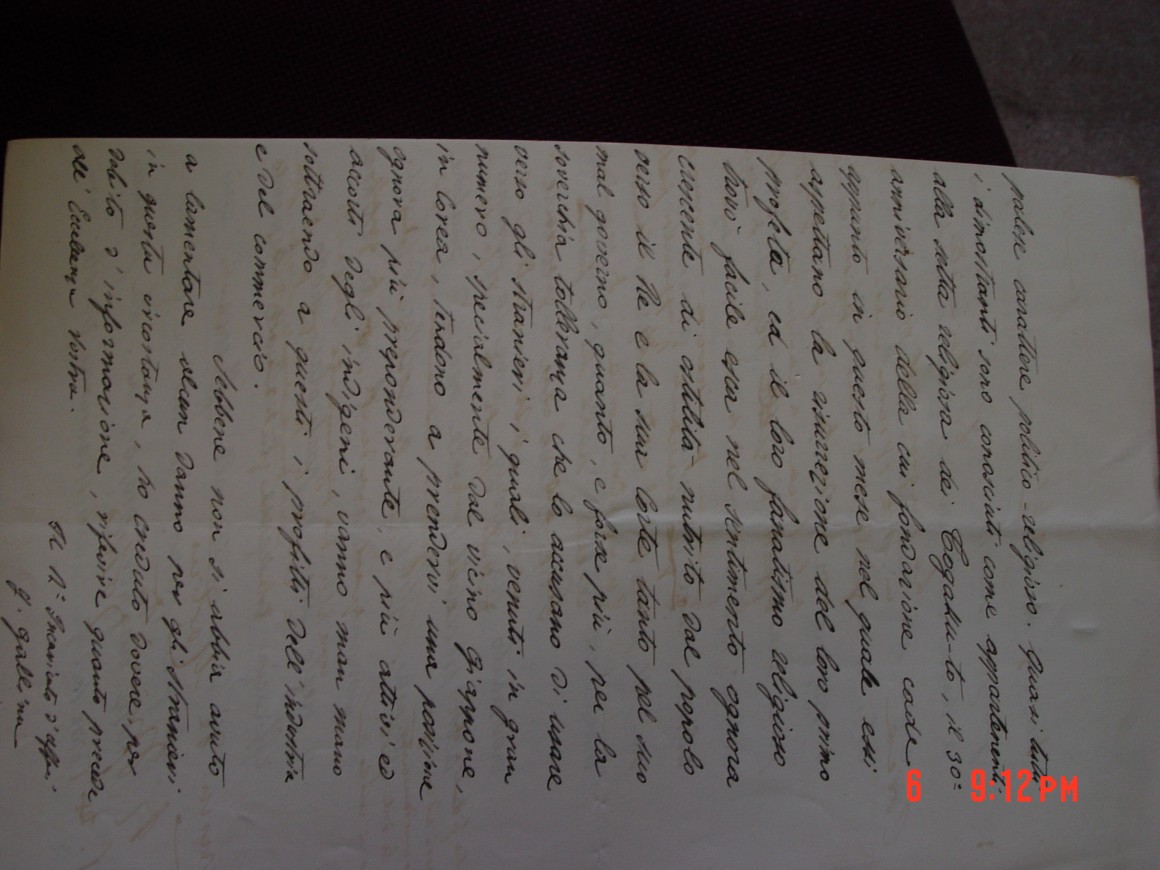 palese carattere politico-religioso. Quasi tutti
i dimostranti sono conosciuti come appartenenti
alla setta religiosa dei Togaku-to, il 30º
anniversario della cui fondazione cade
appunto in questo mese nel quale essi
aspettano la risurrezione del loro primo
profeta, ed il loro fanatismo religioso
trova facile esca nel sentimento ognora
crescente di ostilità nutrito dal popolo
verso il Re e la sua Corte tanto pel suo
mal governo, quanto, e forse più, per la
soverchia tolleranza che lo accusano di usare
verso gli stranieri, i quali, venuti in gran
numero, specialmente dal vicino Giappone,
in Corea, tendono a prendervi una posizione
ognora più preponderante, e più attivi ed
accorti degli indigeni, vanno man mano
sottraendo a questi i profitti dell'industria
e del commercio.
Sebbene non si abbia avuto
a lamentare alcun danno per gli stranieri
in questa circostanza, ho creduto dovere, per
debito d'informazione, riferire quanto precede
all'Eccellenza Vostra.
Il Rº Incaricato d'Affari
G. Gallina
6 9:12 PM